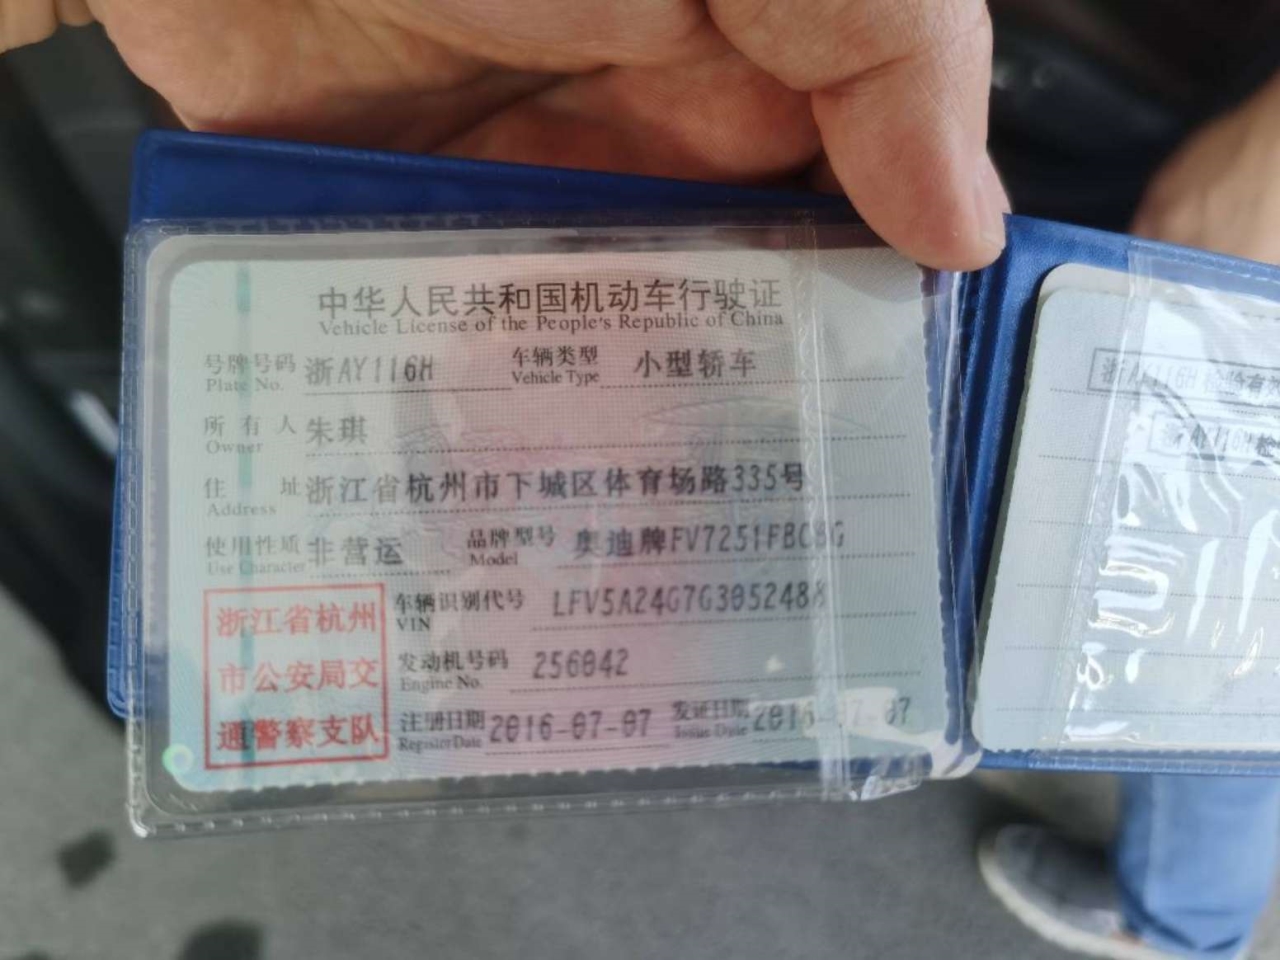 中华人民共和国机动车行驶证
Vehicle License of the People's Republic of China
号牌号码 浙AY116H 车辆类型 小型轿车
Plate No. Vehicle Type
所有人 朱琪
Owner
住址 浙江省杭州市下城区体育场路335号
Address
使用性质 非营运 品牌型号 奥迪牌
Use Character Model
浙江省杭州
市公安局交
通警察支队
车辆识别代号
VIN
发动机号码 256042
Engine No.
注册日期 2016-07-07 发证日期 2016-07-07
Register Date Issue Date
浙AY116H